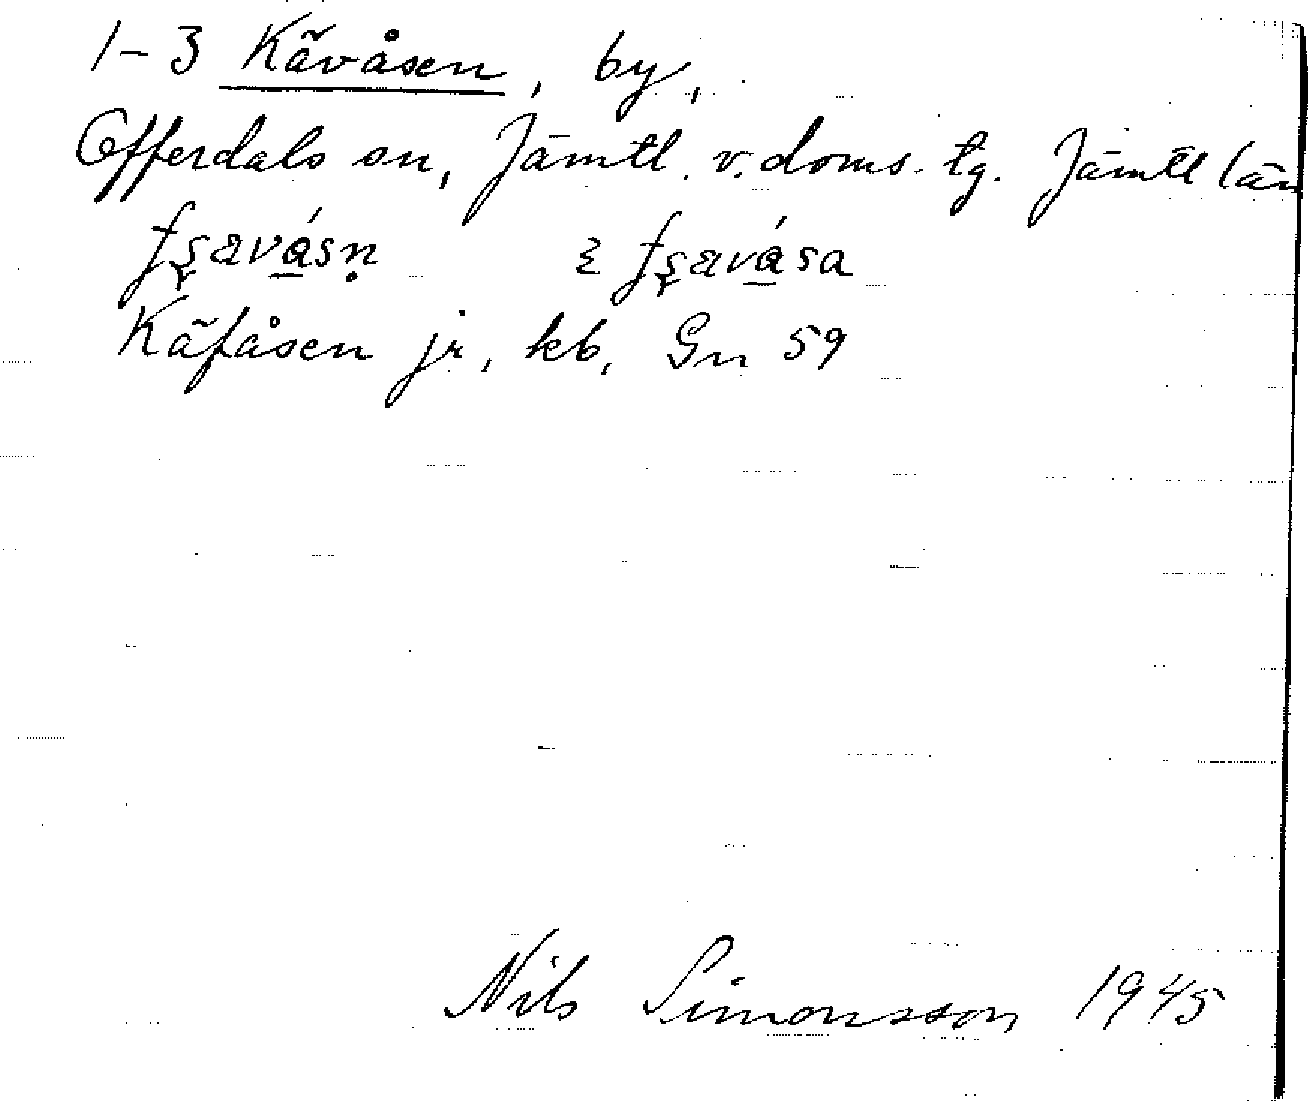 1-3 Kävåsen, by,
Offerdals sn, Jämtl. v. doms. tg. Jämtl län
Käfåsen jr, kb, Gn 59
Nils Simonsson 1945